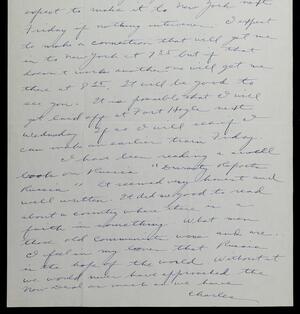 expect to make it to New York next
Friday if nothing intervenes. I expect
to make a connection that will get me
in to New York at 7 25 but if that
doesn't work another one will get me
there at 8 25. It will be good to
see you. It is possible that I will
get laid off at Fort Hoyle next
Wednesday. If so I will see if I
can make an earlier train Friday.
I have been reading a swell
book on Russia "Duranty Reports
Russia". It seemed very honest and
well written. It did me good to read
about a country where there is a
faith in something. What men
those old Communists were and are.
I feel in my bones that Russia
is the hope of the world. Without it
we would never have approached the
New Deal as much as we have.
Charles